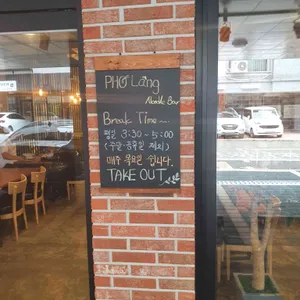 PHỞ Lăng
Noodle Bar
Break Time
평일 3:30 - 5:00
(주말·공휴일 제외)
매주 목요일 쉽니다.
TAKE OUT